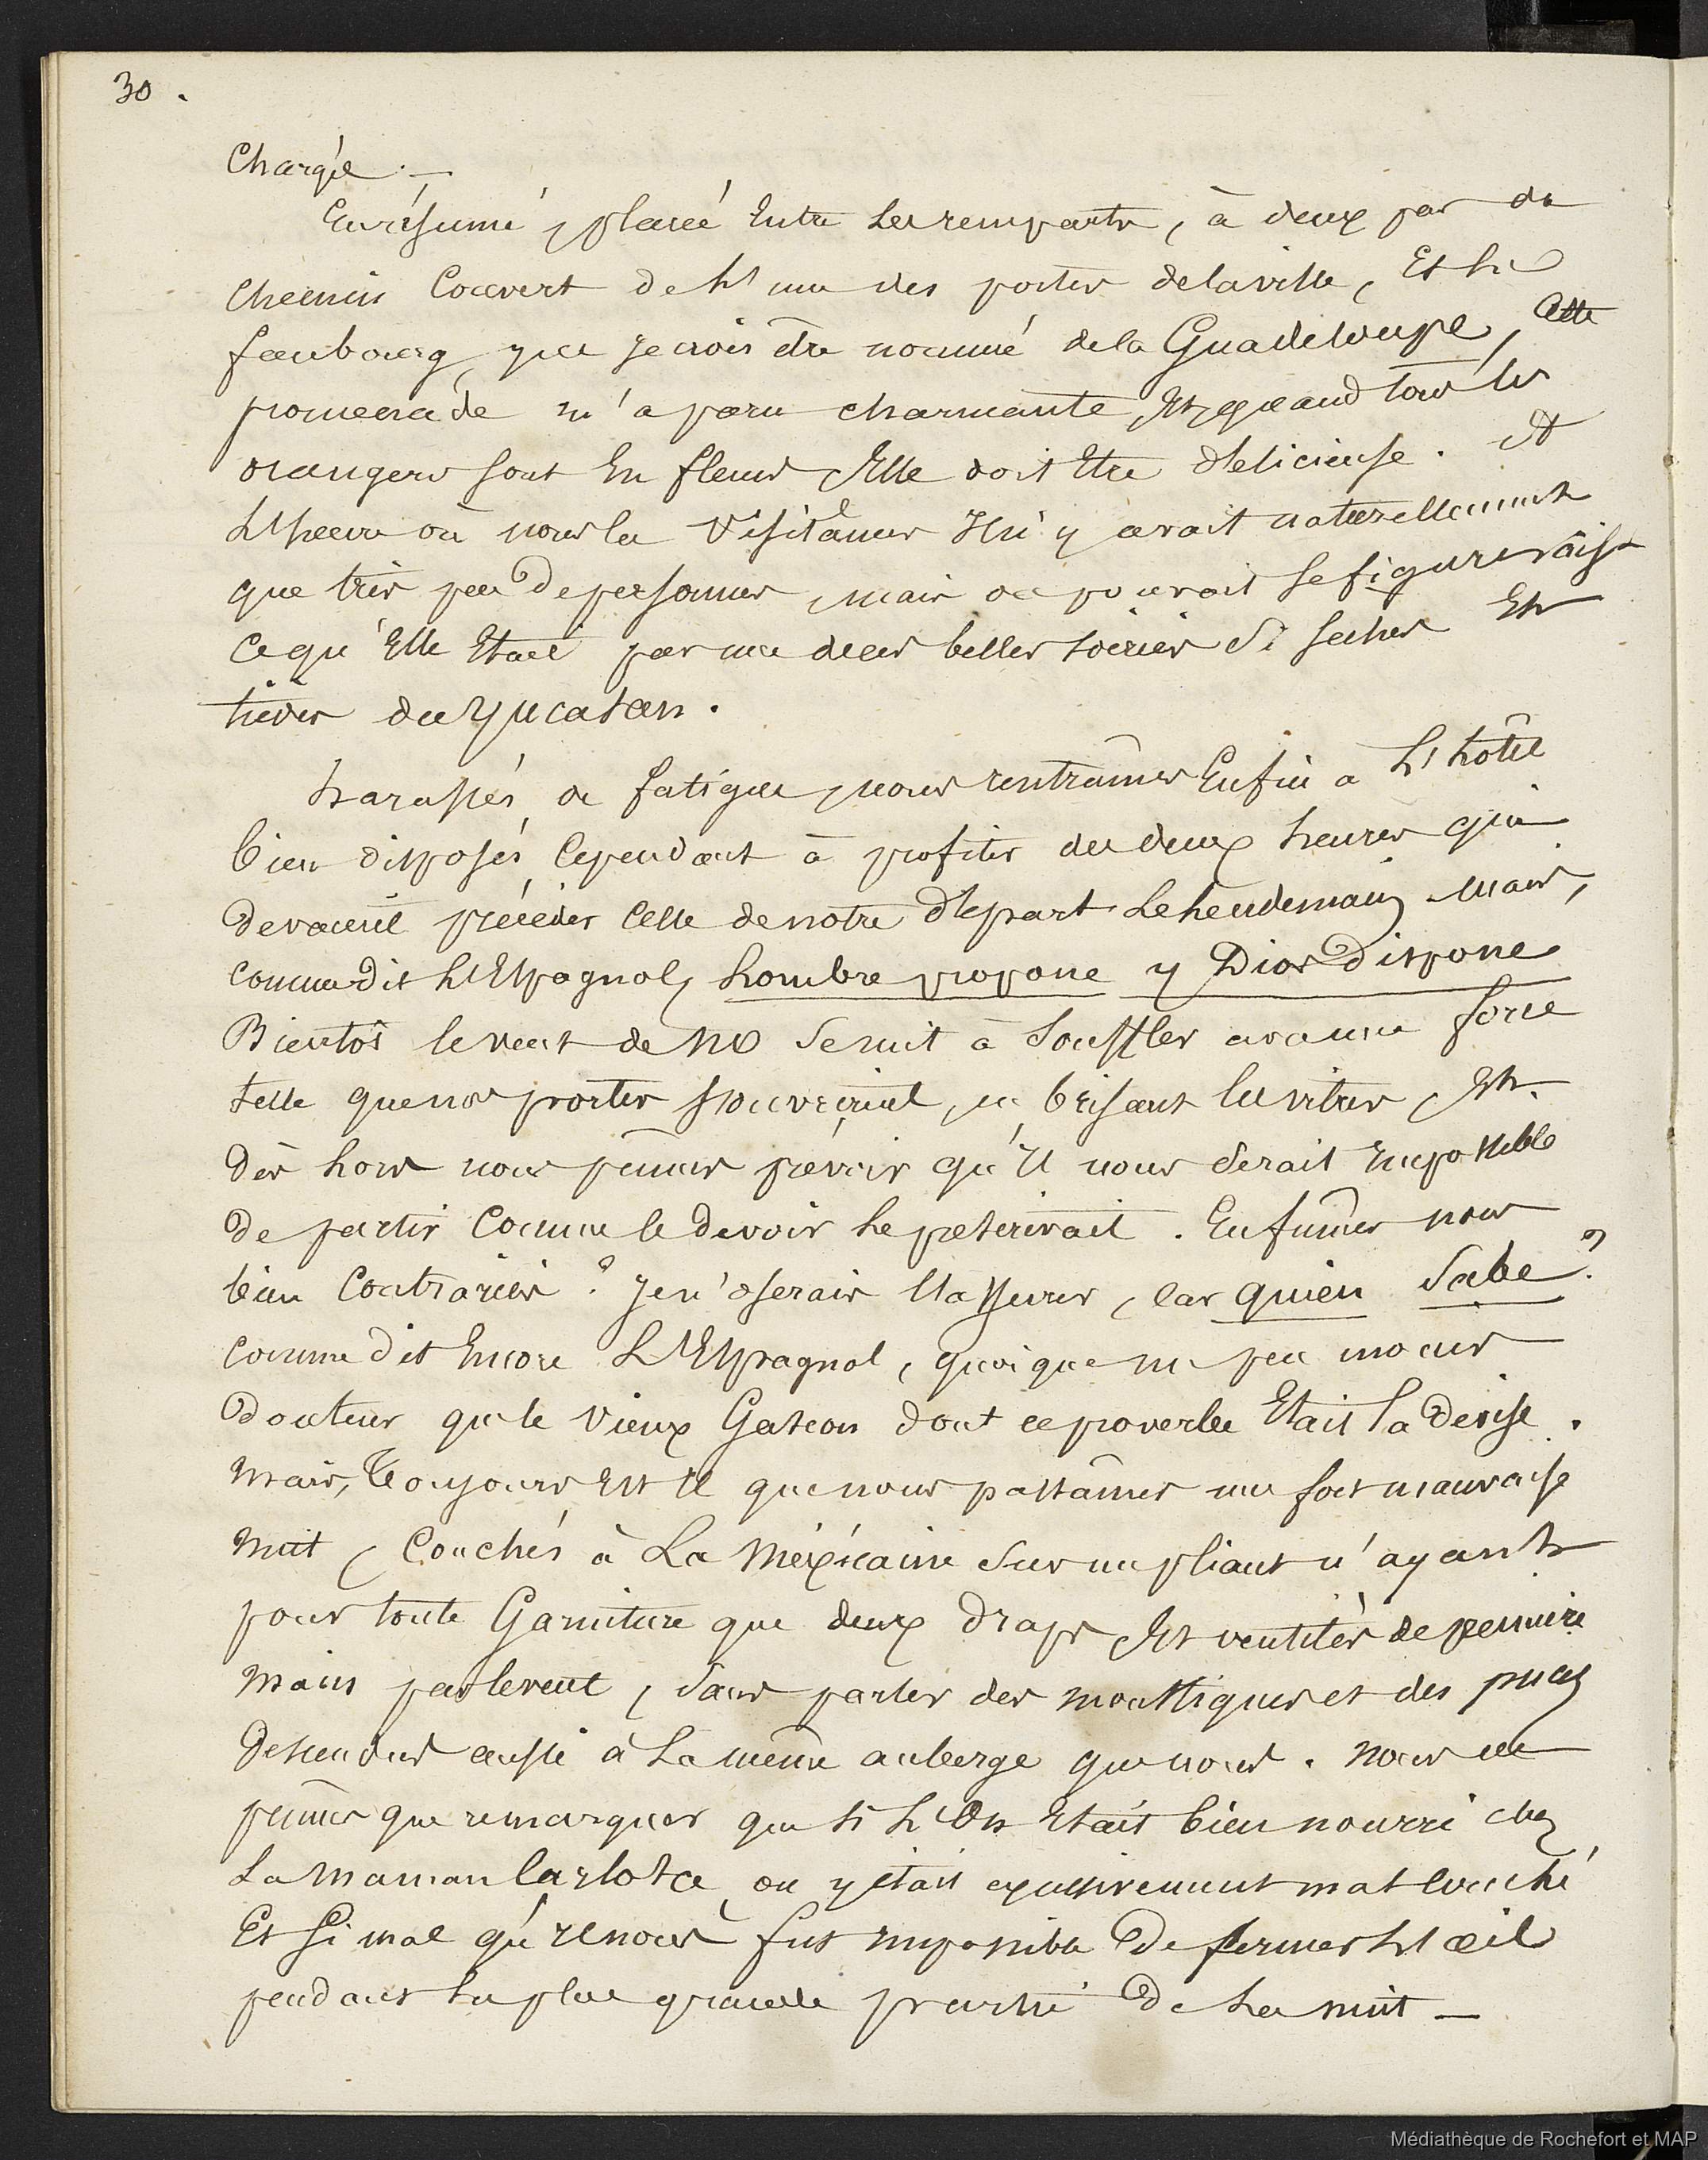 30.
Chargée. —
En résumé, placée Entre Les remparts, à deux pas du
Chemin Couvert de L'une des portes de la ville, Et le
faubourg que je crois être nommé de la Guadeloupe, Cette
promenade m'a paru charmante, Et quand tous les
orangers sont En fleurs, Elle doit Etre délicieuse. à
L'heure où nous la Visitâmes Il n'y avait naturellement
que très peu de personnes, mais on pouvait se figurer
ce qu'Elle Etait par une de ces belles soirées si seches Et
tièdes du Yucatan.
harassés de fatigue, nous rentrâmes Enfin à L'hôtel
bien disposés Cependant à profiter des deux heures qui
devaient précéder Celle de notre départ Le Lendemain. Mais,
comme dit L'Espagnol, hombre propone y Dios dispone
Bientôt le vent de NO se mit à souffler avec une force
telle que nos portes s'ouvrirent, en brisant les vitres, Et
dès lors nous pûmes prévoir qu'Il nous serait Impossible
de partir Comme le devoir le prescrivait. En fûmes nous
bien Contrariés ? Je n'oserais l'assurer, car quien Sabe ?
comme dit Encore L'Espagnol, quoique un peu moins
douteur que le vieux Gascon dont ce proverbe Etait la devise.
Mais, Toujours Est Il que nous passâmes une fort mauvaise
nuit, Couchés à La Méxicaine sur un pliant n'ayant
pour toute Garniture que deux draps, Et ventilés de première
main par le vent, sans parler des moustiques et des puces
descendus aussi à La même auberge que nous. Nous ne
pûmes que remarquer que si L'On Etait bien nourri chez
La Maman Carlota, on y était excessivement mal couché
Et si mal qu'Il nous fut Impossible de fermer L'œil
pendant La plus grande partie de La nuit —
Médiathèque de Rochefort et MAP